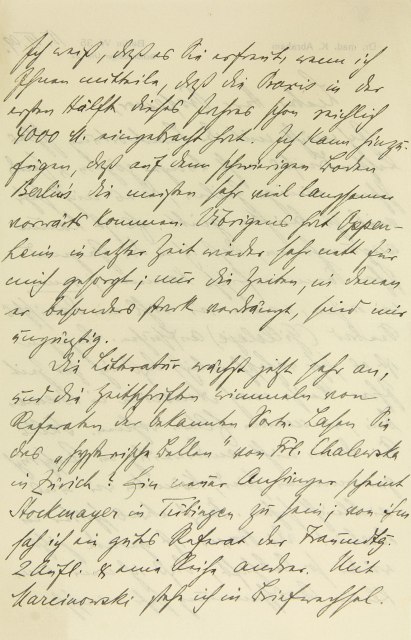 Ich weiß, daß es Sie erfreut, wenn ich
Ihnen mitteile, daß die Praxis in der
ersten Hälfte dieses Jahres schon reichlich
4000 M. eingebracht hat. Ich kann hinzu-
fügen, daß auf dem schwierigen Boden
Berlins die meisten sehr viel langsamer
vorwärts kommen. Übrigens hat Oppen-
heim in letzter Zeit wieder sehr nett für
mich gesorgt; nur die Zeiten, in denen
er besonders stark verdrängt, sind mir
ungünstig.
Die Literatur wächst jetzt sehr an,
und die Zeitschriften wimmeln von
Referaten der bekannten Sorte. Lasen Sie
das „hysterische Bellen" von Frl. Chalewska
in Zürich? Ein neuer Anhänger scheint
Stockmayer in Tübingen zu sein; von ihm
sah ich ein gutes Referat der Traumdtg.
2. Aufl. & eine Reihe andrer. Mit
Marcinowski stehe ich in Briefwechsel.